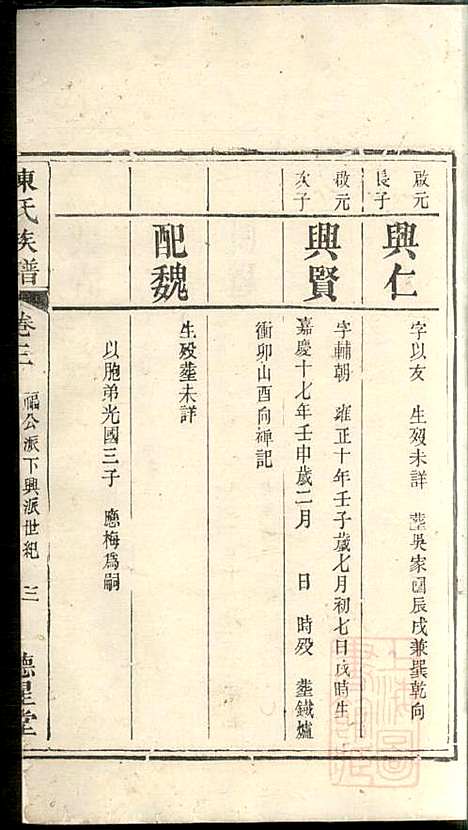 啟元
長子
興仁
字以友 生歿未詳 塟吳家園辰戌兼巽乾向
啟元
次子
興賢
字輔朝 雍正十年壬子歲七月初七日戌時生
嘉慶十七年壬申歲二月 日 時歿 塟鐵爐
衝卯山酉向碑記
配魏
生歿塟未詳
以胞弟光國三子 應梅為嗣
陳氏族譜
卷三
福公派下興派世紀
三
德星堂